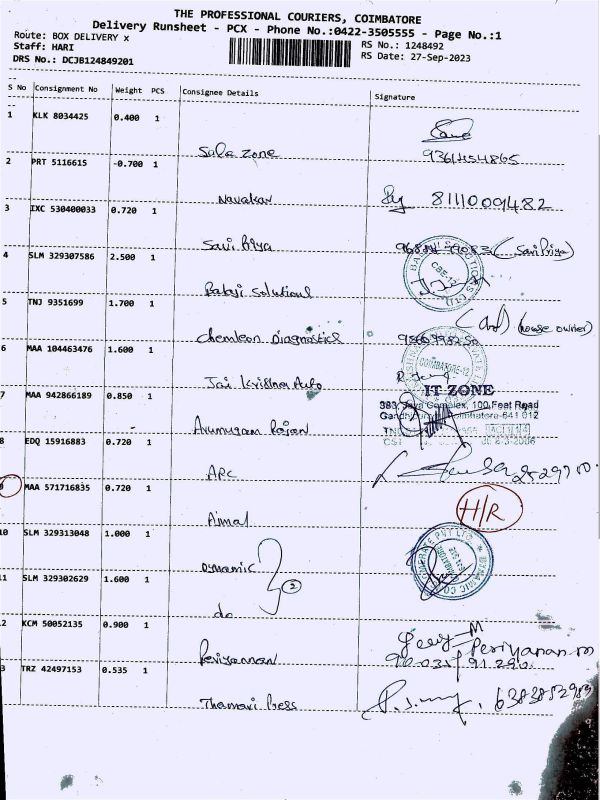 THE PROFESSIONAL COURIERS, COIMBATORE
Delivery Runsheet - PCX - Phone No.:0422-3505555 - Page No.:1
Route: BOX DELIVERY x
RS No.: 1248492
Staff: HARI
RS Date: 27-Sep-2023
DRS No.: DCJB124849201
S No Consignment No Weight PCS Consignee Details Signature
1 KLK 8034425 0.400 1
Sala Zone
2 PRT 5116615 -0.700 1
Navakar 8111009482
3 IXC 530400033 0.720 1
Savi Priya (Savi Priya)
4 SLM 329307586 2.500 1
Balaji Solutions
5 TNJ 9351699 1.700 1
(house owner)
Chemleon Diagnostics
6 MAA 104463476 1.600 1
COIMBATORE-12
Jai Krishna Auto
IT ZONE
7 MAA 942866189 0.850 1
383, Jaya Complex, 100 Feet Road
Coimbatore-641 012
Arumugam Rajan
8 EDQ 15916883 0.720 1
APC
9 MAA 571716835 0.720 1
H/R
Ajmal
10 SLM 329313048 1.000 1
Dynamic 2
11 SLM 329302629 1.600 1
do
12 KCM 50052135 0.900 1
Periyannan
13 TRZ 42497153 0.535 1
Thamarai Press 6383852989